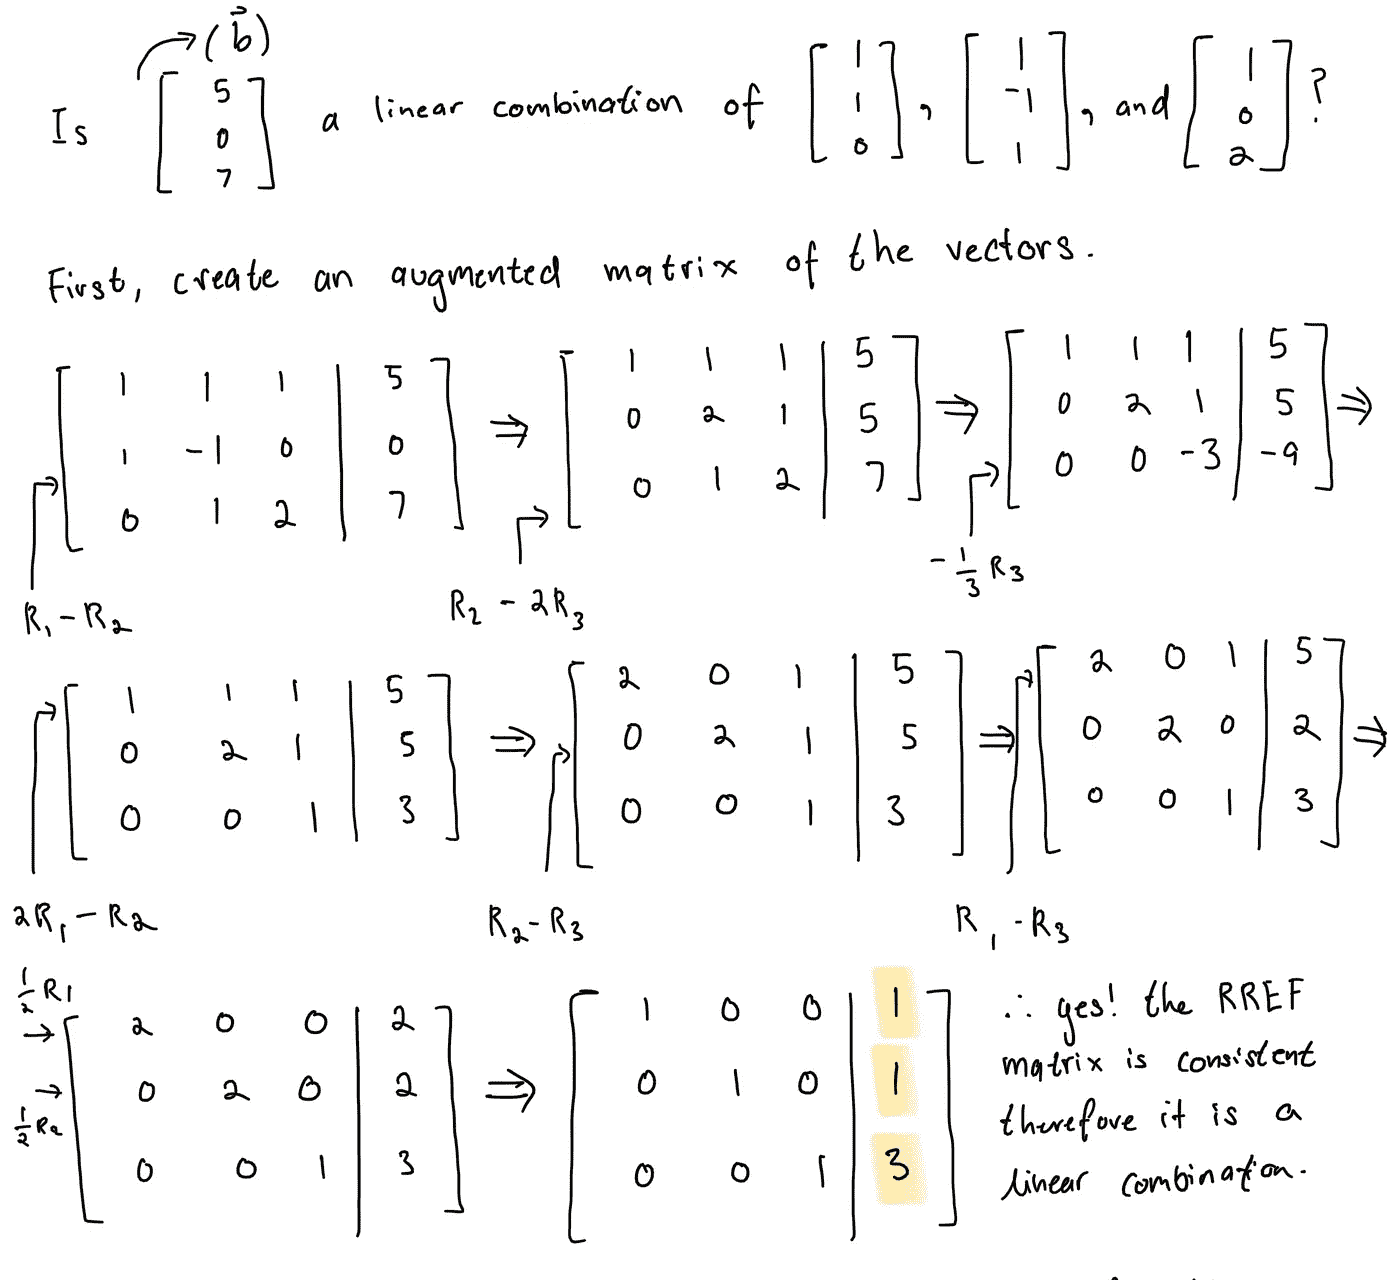 (b⃗)
Is [5 0 7] a linear combination of [1 1 0], [1 -1 1], and [1 0 2]?
First, create an augmented matrix of the vectors.
[1 1 1 | 5] ⇒ [1 1 1 | 5] ⇒ [1 1 1 | 5] ⇒
[1 -1 0 | 0] [0 2 1 | 5] [0 2 1 | 5]
[0 1 2 | 7] [0 1 2 | 7] [0 0 -3 | -9]
R₁ - R₂ R₂ - 2R₃ -1/3 R₃
[1 1 1 | 5] ⇒ [2 0 1 | 5] ⇒ [2 0 1 | 5] ⇒
[0 2 1 | 5] [0 2 1 | 5] [0 2 0 | 2]
[0 0 1 | 3] [0 0 1 | 3] [0 0 1 | 3]
2R₁ - R₂ R₂ - R₃ R₁ - R₃
1/2 R1
[2 0 0 | 2] ⇒ [1 0 0 | 1]
[0 2 0 | 2] [0 1 0 | 1]
1/2 R₂
[0 0 1 | 3] [0 0 1 | 3]
∴ yes! the RREF
matrix is consistent
therefore it is a
linear combination.